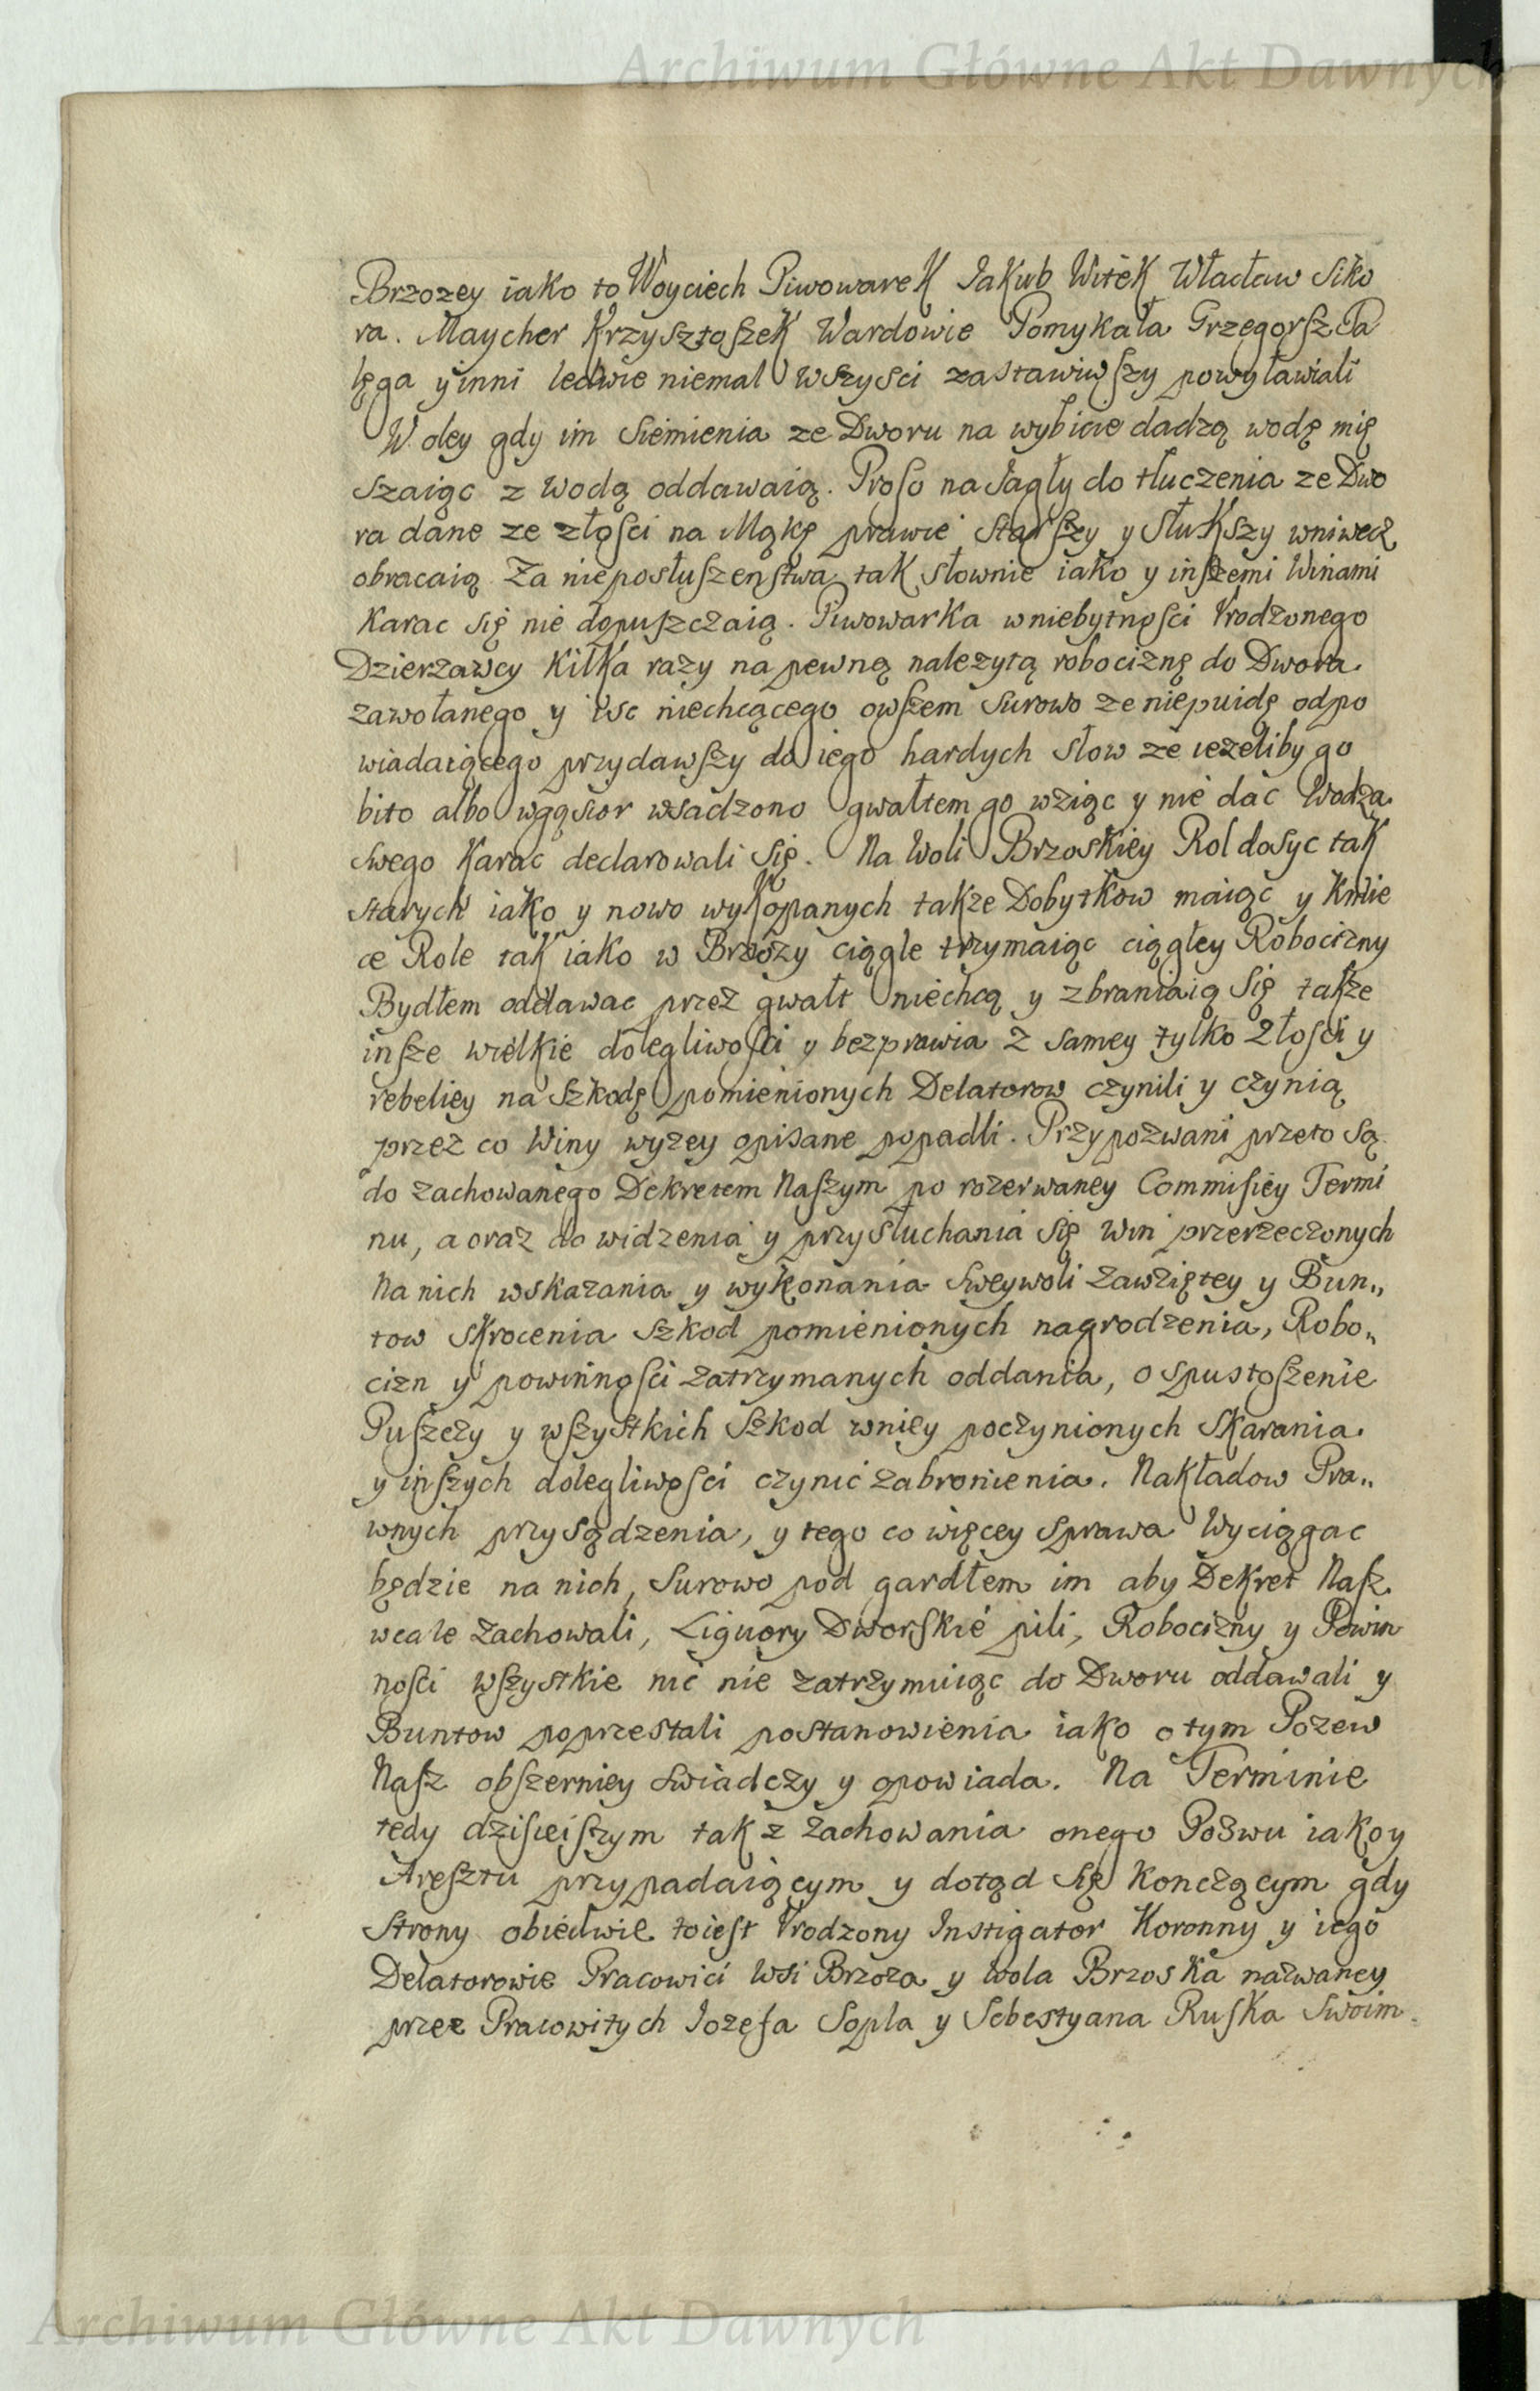 Archiwum Główne Akt Dawnych
Brzozey iako to Woyciech Piwowarek Jakub Witek Wacław Siko
ra. Maycher Krzysztoszek Wardowie Pomykała Grzegorsz Pa
lęga y inni ledwie niemal wszysci zastawiwszy powyławiali
W oley gdy im Siemienia ze Dworu na wybicie dadzą wodę mię
szaiąc z wodą oddawaią. Proso na Jagły do tłuczenia ze Dwo
ra dane ze złosci na Mąkę prawie starszy y słukszy wniwecz
obracaią Za nieposłuszenstwa tak słownie iako y inszemi Winami
Karac się nie dopuszczaią. Piwowarka w niebytnosci Vrodzonego
Dzierzawcy Kilka razy na pewną nalezytą robociznę do Dwora
zawołanego y isc niechcącego owszem surowo ze niepuidę odpo
wiadaiącego przydawszy do iego hardych słow ze iezeliby go
bito albo w gąsior wsadzono gwałtem go wziąc y nie dac Wodza
swego Karac declarowali się. Na Woli Brzoskiey Rol dosyc tak
starych iako y nowo wykopanych takze Dobytkow maiąc y Kmie
ce Role tak iako w Brzozy ciągle trzymaiąc ciągłey Robocizny
Bydłem oddawac przez gwałt niechcą y zbraniaią Się takze
insze wielkie dolegliwosci y bezprawia z samey tylko złosci y
rebeliey na szkodę pomienionych Delatorow czynili y czynią
przez co Winy wyzey opisane popadli. Przypozwani przeto są
do zachowanego Dekretem Naszym po rozerwaney Commisiey Termi
nu, a oraz do widzenia y przysłuchania się win przerzeczonych
na nich wskazania y wykonania Sweywoli zawziętey y Bun„
tow skrocenia szkod pomienionych nagrodzenia, Robo„
cizn y powinnosci zatrzymanych oddania, o spustoszenie
Puszczy y wszystkich szkod w niey poczynionych skarania
y inszych dolegliwosci czynic zabronienia. Nakładow Pra„
wnych przysądzenia, y tego co więcey sprawa Wyciągac
będzie na nich, surowo pod gardłem im aby Dekret Nasz
wcale zachowali, Liquory Dworskie pili, Robocizny y Powin
nosci wszystkie nic nie zatrzymuiąc do Dworu oddawali y
Buntow poprzestali postanowienia iako o tym Pozew
Nasz obszerniey swiadczy y opowiada. Na Terminie
tedy dzisieiszym tak z zachowania onego Pozwu iako y
Aresztu przypadaiącym y dotąd się konczącym gdy
Strony obiedwie toiest Vrodzony Instigator Koronny y iego
Delatorowie Pracowici Wsi Brzoza y Wola Brzoska nazwaney
przez Pracowitych Iozefa Sopla y Sebestyana Ruska Swoim
Archiwum Główne Akt Dawnych